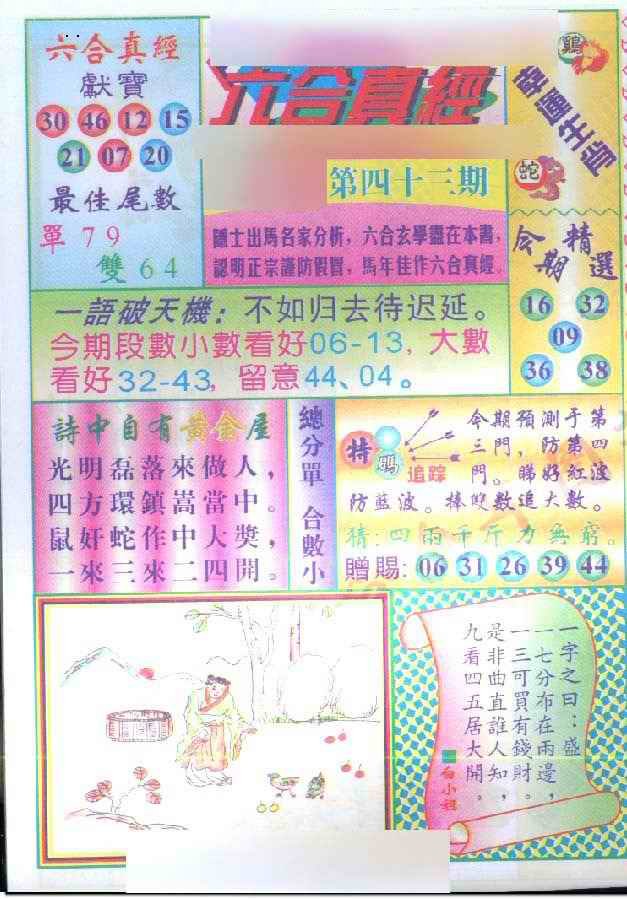 六合真經
獻寶
30 46 12 15
21 07 20
最佳尾數
單 7 9
雙 6 4
六合真經
第四十三期
隱士出馬名家分析，六合玄學盡在本書，
認明正宗謹防假冒，馬年佳作六合真經。
鷄
蛇
今期精選
16 32
09
36 38
一語破天機：不如归去待迟延。
今期段數小數看好06-13，大數
看好32-43，留意44、04。
詩中自有黃金屋
光明磊落來做人，
四方環鎮嵩當中。
鼠奸蛇作中大獎，
一來三來二四開。
總分單 合數小
特碼追踪
今期預測于第
三門，防第四
門。睇好紅波
防藍波。捧雙數追大數。
猜：四兩千斤力無窮。
贈賜：06 31 26 39 44
一字之曰：盛
一七分布在兩邊，
一三可買有錢財。
是非曲直誰人知，
九看四五居大開。
白小姐